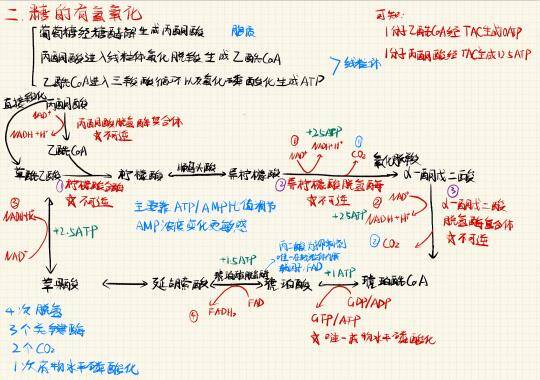 二.糖的有氧氧化
葡萄糖经糖酵解生成丙酮酸 胞质
丙酮酸进入线粒体氧化脱羧生成乙酰CoA
乙酰CoA进入三羧酸循环以及氧化磷酸化生成ATP
线粒体
可知:
1分子乙酰CoA经TAC生成10ATP
1分子丙酮酸经TAC生成12.5ATP
直接羧化 丙酮酸
NAD⁺
NADH+H⁺
丙酮酸脱氢酶复合体
☆不可逆
乙酰CoA
草酰乙酸
①柠檬酸合酶
☆不可逆
柠檬酸
顺乌头酸
异柠檬酸
①
NAD⁺
+2.5ATP
NADH+H⁺
①
CO₂
氧化脱羧
②异柠檬酸脱氢酶
☆不可逆
α-酮戊二酸
主要靠ATP/AMP比值调节
AMP浓度变化更敏感
③
NADH+H⁺
NAD⁺
+2.5ATP
+2.5ATP
②
NAD⁺
NADH+H⁺
② CO₂
③
α-酮戊二酸
脱氢酶复合体
☆不可逆
苹果酸
延胡索酸
+1.5ATP
琥珀酸脱氢酶
丙二酸为抑制剂
辅因子:FAD
琥珀酸
④
FADH₂
FAD
+1ATP
琥珀酰CoA
GDP/ADP
GTP/ATP
☆唯一底物水平磷酸化
4次脱氢
3个关键酶
2个CO₂
1次底物水平磷酸化